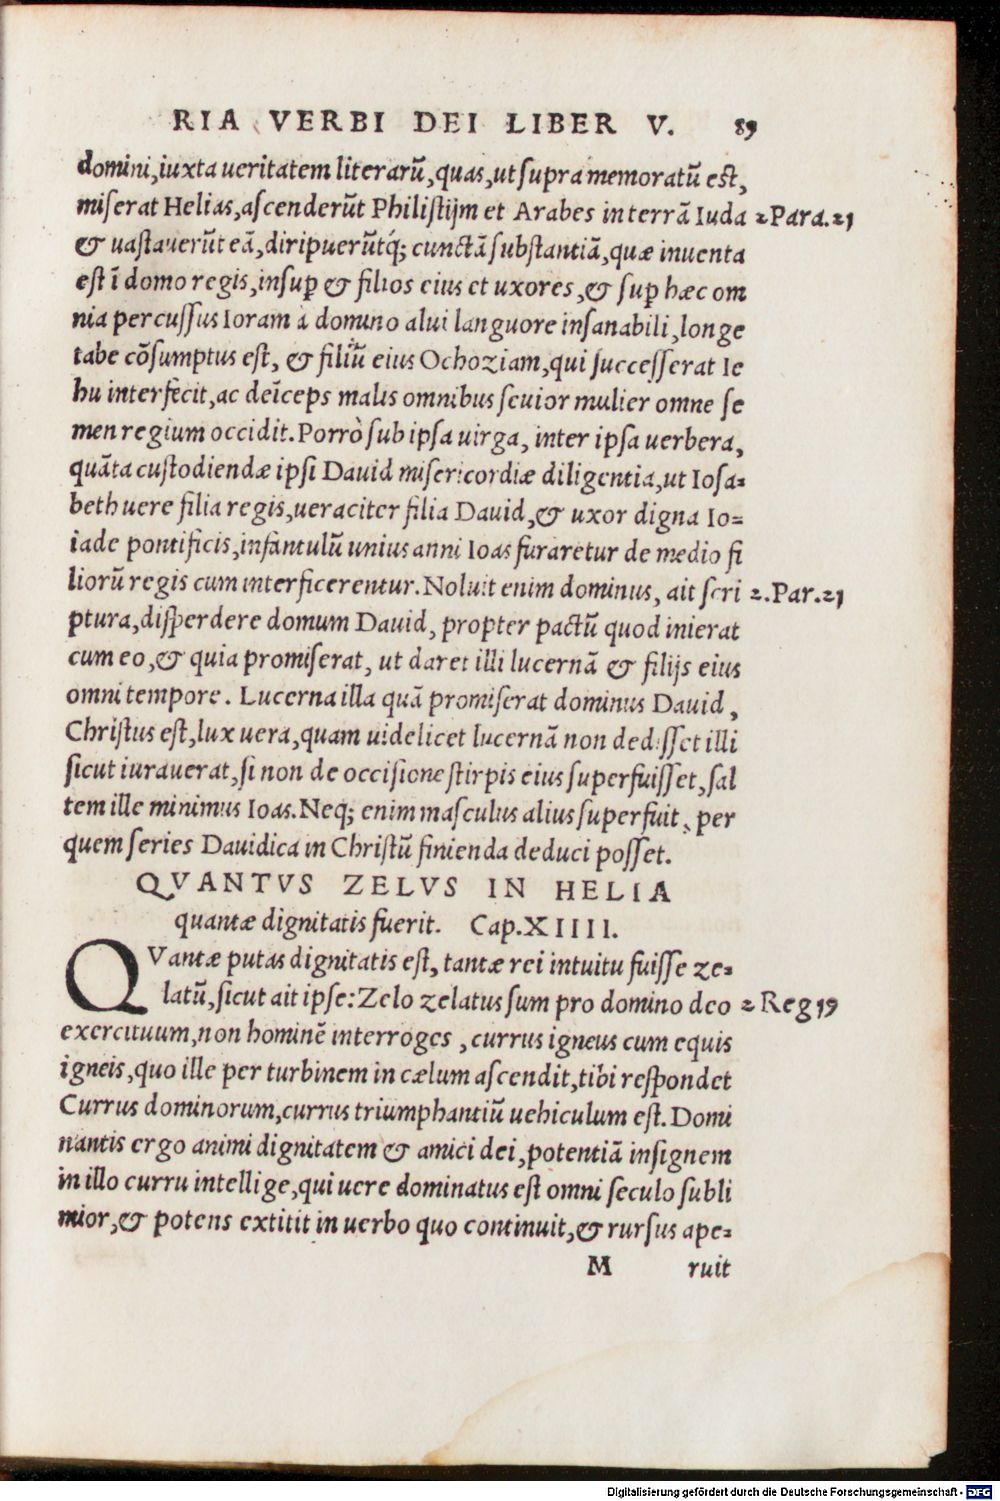 RIA VERBI DEI LIBER V. 89
domini, iuxta ueritatem literarũ, quas, ut supra memoratũ est,
miserat Helias, ascenderũt Philistijm et Arabes in terrã Iuda 2 Para. 21
& uastauerũt eã, diripuerũtq́; cunctã substantiã, quæ inuenta
est ĩ domo regis, insuꝑ & filios eius et uxores, & suꝑ hæc om
nia percussus Ioram à domino alui languore insanabili, longe
tabe cõsumptus est, & filiũ eius Ochoziam, qui successerat Ie
hu interfecit, ac deĩceps malis omnibus seuior mulier omne se
men regium occidit. Porrò sub ipsa uirga, inter ipsa uerbera,
quãta custodiendæ ipsi Dauid misericordiæ diligentia, ut Iosa=
beth uere filia regis, ueraciter filia Dauid, & uxor digna Io=
iade pontificis, infantulũ unius anni Ioas furaretur de medio fi
liorũ regis cum interficerentur. Noluit enim dominus, ait scri 2. Par. 21
ptura, disperdere domum Dauid, propter pactũ quod inierat
cum eo, & quia promiserat, ut daret illi lucernã & filijs eius
omni tempore. Lucerna illa quã promiserat dominus Dauid,
Christus est, lux uera, quam uidelicet lucernã non dedisset illi
sicut iurauerat, si non de occisione stirpis eius superfuisset, sal
tem ille minimus Ioas. Neq; enim masculus alius superfuit, per
quem series Dauidica in Christũ finienda deduci posset.
QVANTVS ZELVS IN HELIA
quantæ dignitatis fuerit. Cap. XIIII.
QVantæ putas dignitatis est, tantæ rei intuitu fuisse ze=
latũ, sicut ait ipse: Zelo zelatus sum pro domino deo 2 Reg 19
exercituum, non hominẽ interroges, currus igneus cum equis
igneis, quo ille per turbinem in cælum ascendit, tibi respondet
Currus dominorum, currus triumphantiũ uehiculum est. Domi
nantis ergo animi dignitatem & amici dei, potentiã insignem
in illo curru intellige, qui uere dominatus est omni seculo subli
mior, & potens extitit in uerbo quo continuit, & rursus ape=
M ruit
Digitalisierung gefördert durch die Deutsche Forschungsgemeinschaft - DFG